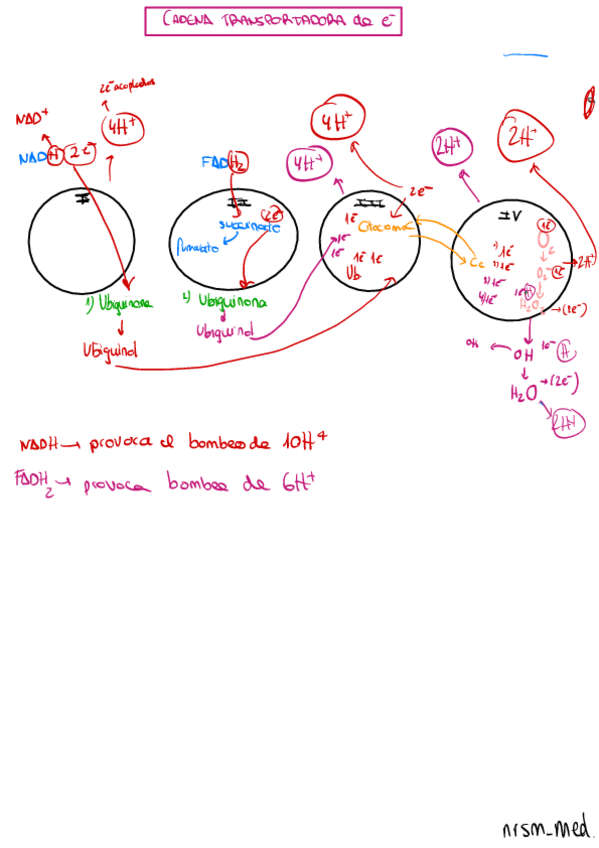 CADENA TRANSPORTADORA de e⁻
2e⁻ acoplados
NAD⁺
4H⁺
NADH 2e⁻
I
1) Ubiquinona
Ubiquinol
FADH₂
II
succinato
2e⁻
fumarato
2) Ubiquinona
Ubiquinol
4H⁺
4H⁺
2e⁻
III
1e⁻
Citocromo C
1e⁻
1e⁻
1e⁻ 1e⁻
Ub.
2H⁺
2H⁺
IV
1e⁻
Cc
1) 1e⁻
2) 1e⁻
3) 1e⁻
4) 1e⁻
O₂⁻
1e⁻
2H⁺
1e⁻
H₂O₂
(2e⁻)
OH
OH
1e⁻
H
H₂O
(2e⁻)
2H⁺
NADH → provoca el bombeo de 10H⁺
FADH₂ → provoca bombeo de 6H⁺
nrsm_med.